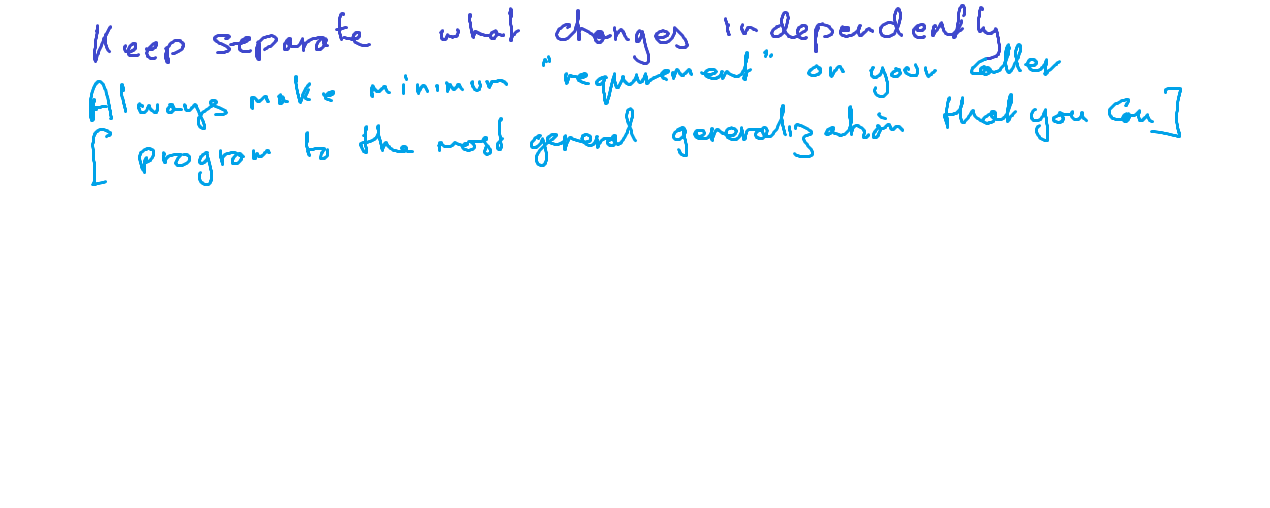 Keep separate what changes independently
Always make minimum "requirement" on your caller
[ program to the most general generalization that you can ]